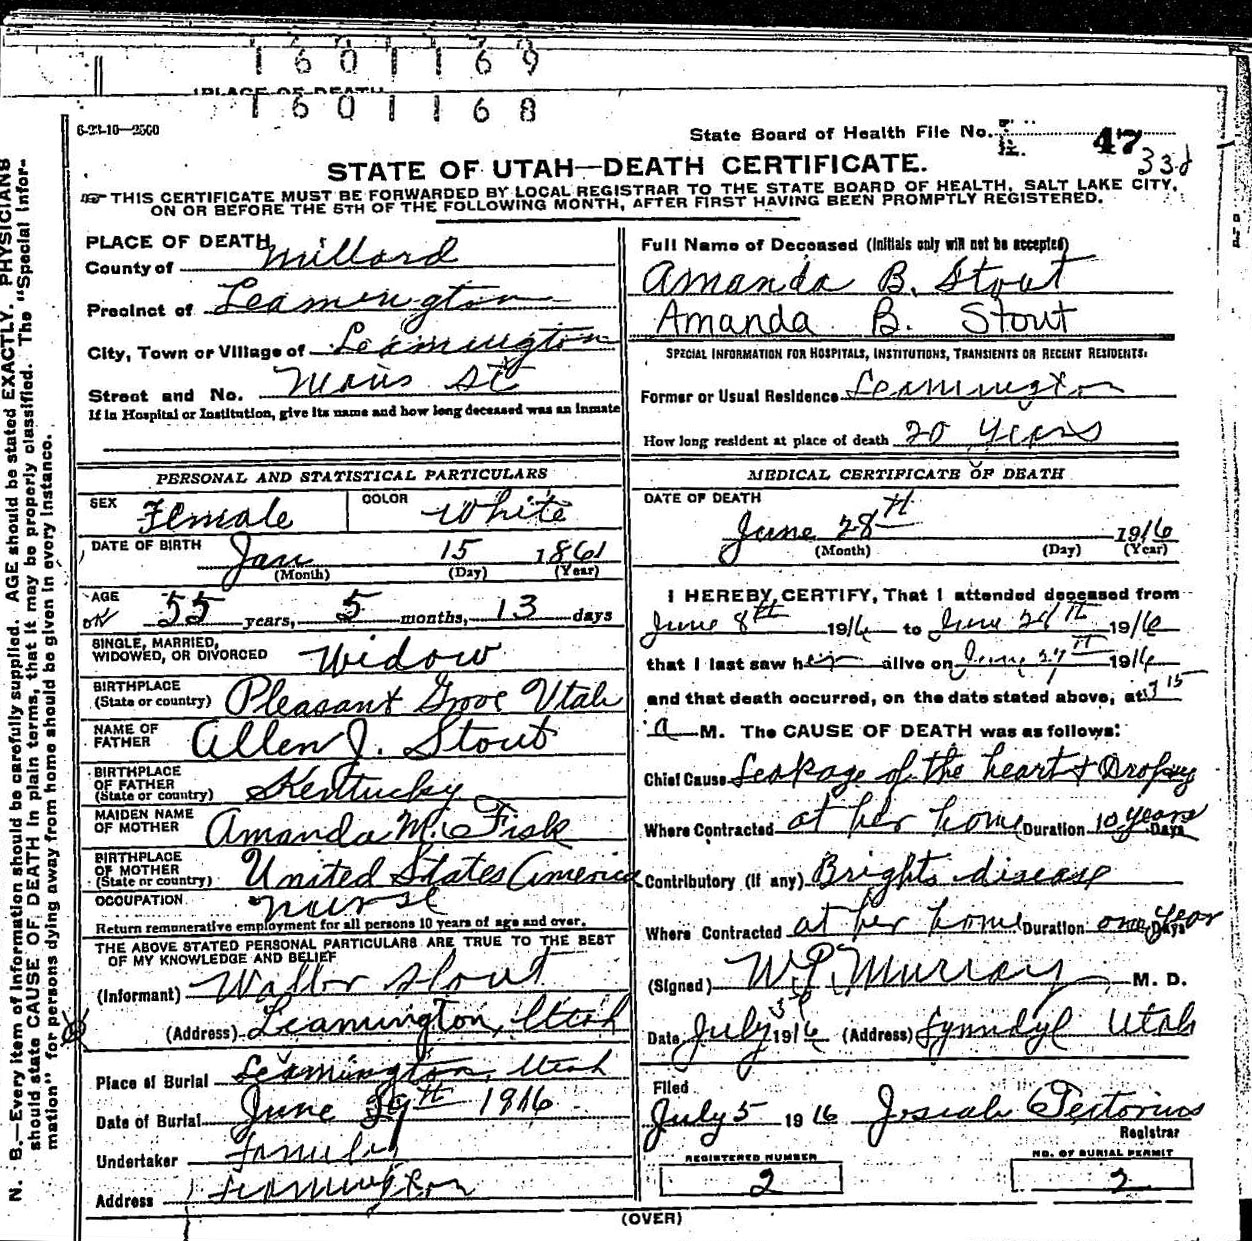 1 6 0 1 1 6 9
PLACE OF DEATH
1 6 0 1 1 6 8
6-23-10—2500
State Board of Health File No. 47
330
STATE OF UTAH—DEATH CERTIFICATE.
THIS CERTIFICATE MUST BE FORWARDED BY LOCAL REGISTRAR TO THE STATE BOARD OF HEALTH, SALT LAKE CITY,
ON OR BEFORE THE 5TH OF THE FOLLOWING MONTH, AFTER FIRST HAVING BEEN PROMPTLY REGISTERED.
PLACE OF DEATH
County of Millard
Precinct of Leamington
City, Town or Village of Leamington
Street and No. Main St
If in Hospital or Institution, give its name and how long deceased was an inmate
Full Name of Deceased (Initials only will not be accepted)
Amanda B. Stout
Amanda B. Stout
SPECIAL INFORMATION FOR HOSPITALS, INSTITUTIONS, TRANSIENTS OR RECENT RESIDENTS:
Former or Usual Residence Leamington
How long resident at place of death 20 years
PERSONAL AND STATISTICAL PARTICULARS
SEX Female COLOR White
DATE OF BIRTH Jan 15 1861
(Month) (Day) (Year)
AGE
ok 55 years, 5 months, 13 days
SINGLE, MARRIED,
WIDOWED, OR DIVORCED Widow
BIRTHPLACE
(State or country) Pleasant Grove Utah
NAME OF
FATHER Allen J. Stout
BIRTHPLACE
OF FATHER
(State or country) Kentucky
MAIDEN NAME
OF MOTHER Amanda M. Fisk
BIRTHPLACE
OF MOTHER
(State or country) United States America
OCCUPATION nurse
Return remunerative employment for all persons 10 years of age and over.
THE ABOVE STATED PERSONAL PARTICULARS ARE TRUE TO THE BEST
OF MY KNOWLEDGE AND BELIEF
(Informant) Stout
(Address) Leamington, Utah
Place of Burial Leamington, Utah
Date of Burial June 29th 1916
Undertaker Family
Address Leamington
MEDICAL CERTIFICATE OF DEATH
DATE OF DEATH
June 28th 1916
(Month) (Day) (Year)
I HEREBY CERTIFY, That I attended deceased from
June 8th 1916 to June 28th 1916
that I last saw her alive on June 27th 1916
and that death occurred, on the date stated above, at 7 15
a M. The CAUSE OF DEATH was as follows:
Chief Cause Leakage of the heart & Dropsy
Where Contracted at her home Duration 10 years Days
Contributory (if any) Brights disease
Where Contracted at her home Duration one year Days
(Signed) W. P. Murray M. D.
Date July 3rd 1916 (Address) Lynndyl Utah
Filed
July 5 1916 Josiah Pretorius
Registrar
REGISTERED NUMBER
2
NO. OF BURIAL PERMIT
2
(OVER)
N. B.—Every item of information should be carefully supplied. AGE should be stated EXACTLY. PHYSICIANS
should state CAUSE OF DEATH in plain terms, that it may be properly classified. The "Special Infor-
mation" for persons dying away from home should be given in every instance.